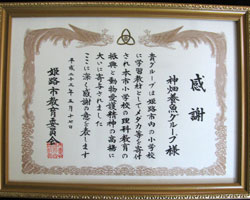 感謝
神畑養魚グループ様
貴グループは姫路市内の小学校
に学習教材としてメダカ等を寄付
され本市小学校の理科教育の
振興と動物愛護精神の高揚に
大いに寄与されました
ここに深く感謝の意を表します
平成二十三年五月十七日
姫路市教育委員会